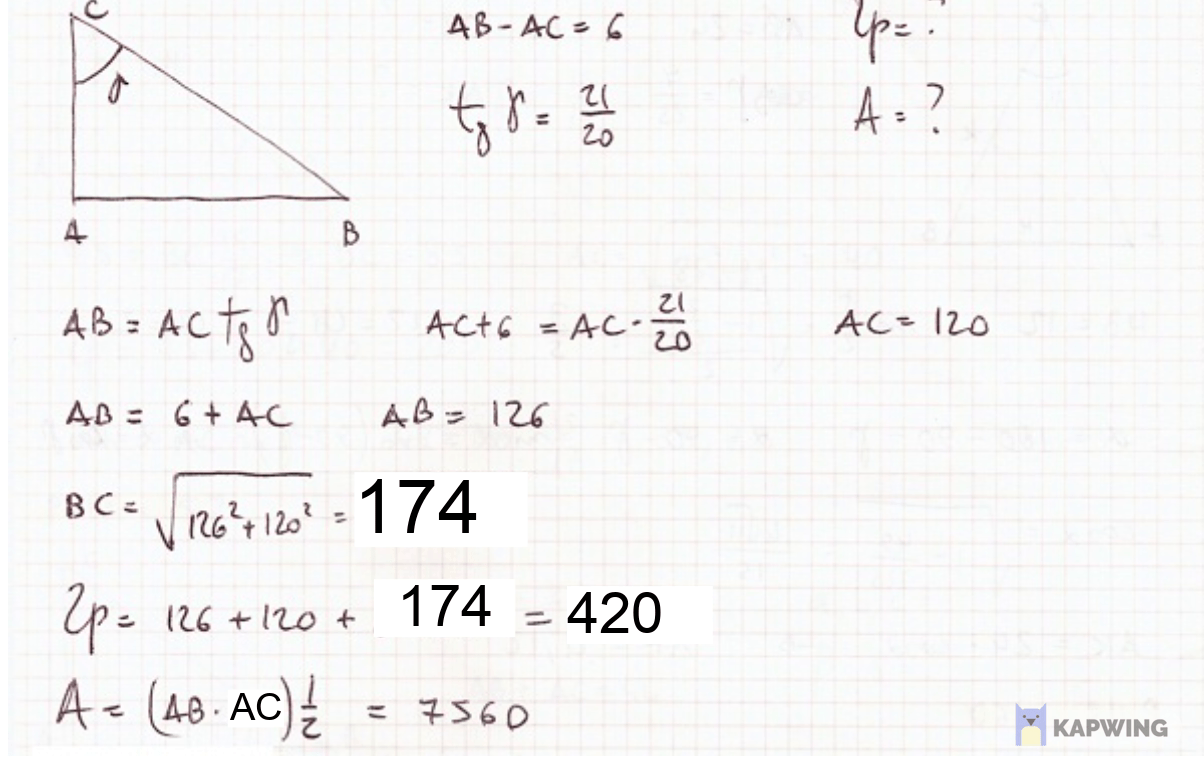 C AB - AC = 6 2p = ?
γ tg γ = 21/20 A = ?
A B
AB = AC tg γ AC + 6 = AC · 21/20 AC = 120
AB = 6 + AC AB = 126
BC = √126² + 120² = 174
2p = 126 + 120 + 174 = 420
A = (AB · AC) 1/2 = 7560
KAPWING